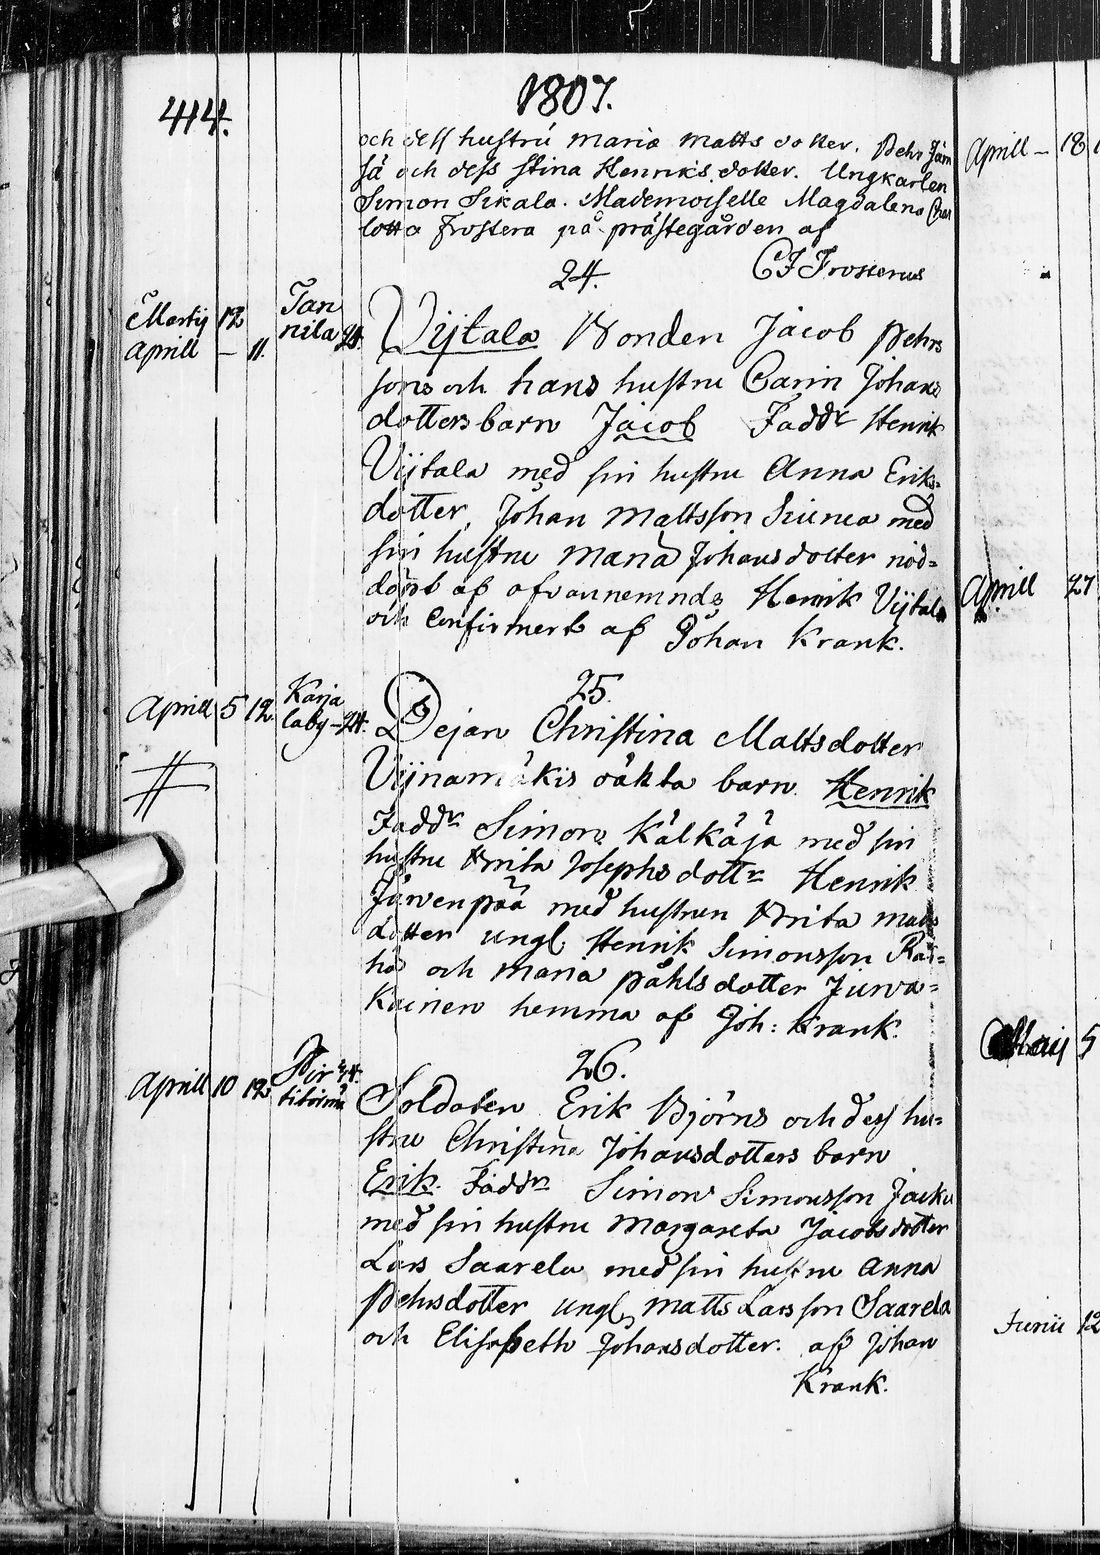 414.
1807.
och dess hustru Maria Matts dotter. Pehr Jäm
sä och dess Stina Henriks dotter. Ungkarlen
Simon Sikala. Mademoiselle Magdalena Char
lotta Frostera på prästegården af
CJ Frosterus
24.
Martij 12
Aprill – 11.
Tan
nila 24.
Vijtala Bonden Jacob Pehrs
sons och hans hustru Carin Johans
dotters barn Jacob Faddr Henrik
Vijtala med sin hustru Anna Eriks=
dotter, Johan Mattsson Siurua med
sin hustru Maria Johansdotter nöd=
döpt af ofvannemnde Henrik Vijtala
och Confirmert af Johan Krank.
25.
Aprill 5 12
Karja
laby – 24.
Pejan Christina Mattsdotter
Vijnamäkis oäkta barn Henrik
Faddr Simon Kälkäjä med sin
hustru Brita Josephs dottr Henrik
Järvenpää med hustrun Brita Matts
dotter ungl. Henrik Simonsson
och Maria Påhlsdotter Jurva=
kainen hemma af Joh: Krank.
26.
Aprill 10 12
24.
Soldaten Erik Björns och dess hu=
stru Christina Johansdotters barn
Erik. Faddr Simon Simonsson Jaiku
med sin hustru Margareta Jacobsdotter
Lars Saarela med sin hustru Anna
Pehrsdotter ungl. Matts Larsson Saarela
och Elisabeth Johansdotter. af Johan
Krank.
Aprill – 18
Aprill 27
Maij 5
Junii 12